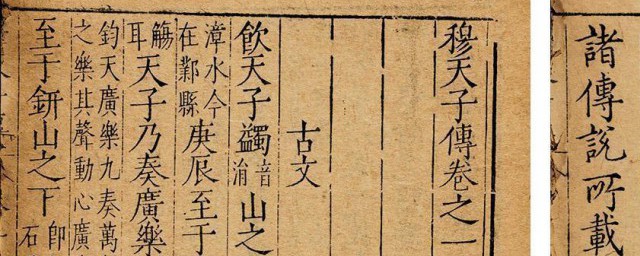 諸傳說所載
穆天子傳卷之一
古文
飲天子蠲音涓山之
漳水今
在鄴縣
庚辰至于
觴
耳
天子乃奏廣樂
鈞天廣樂九奏萬
之樂其聲動心廣
至于鈃山之下
即
石